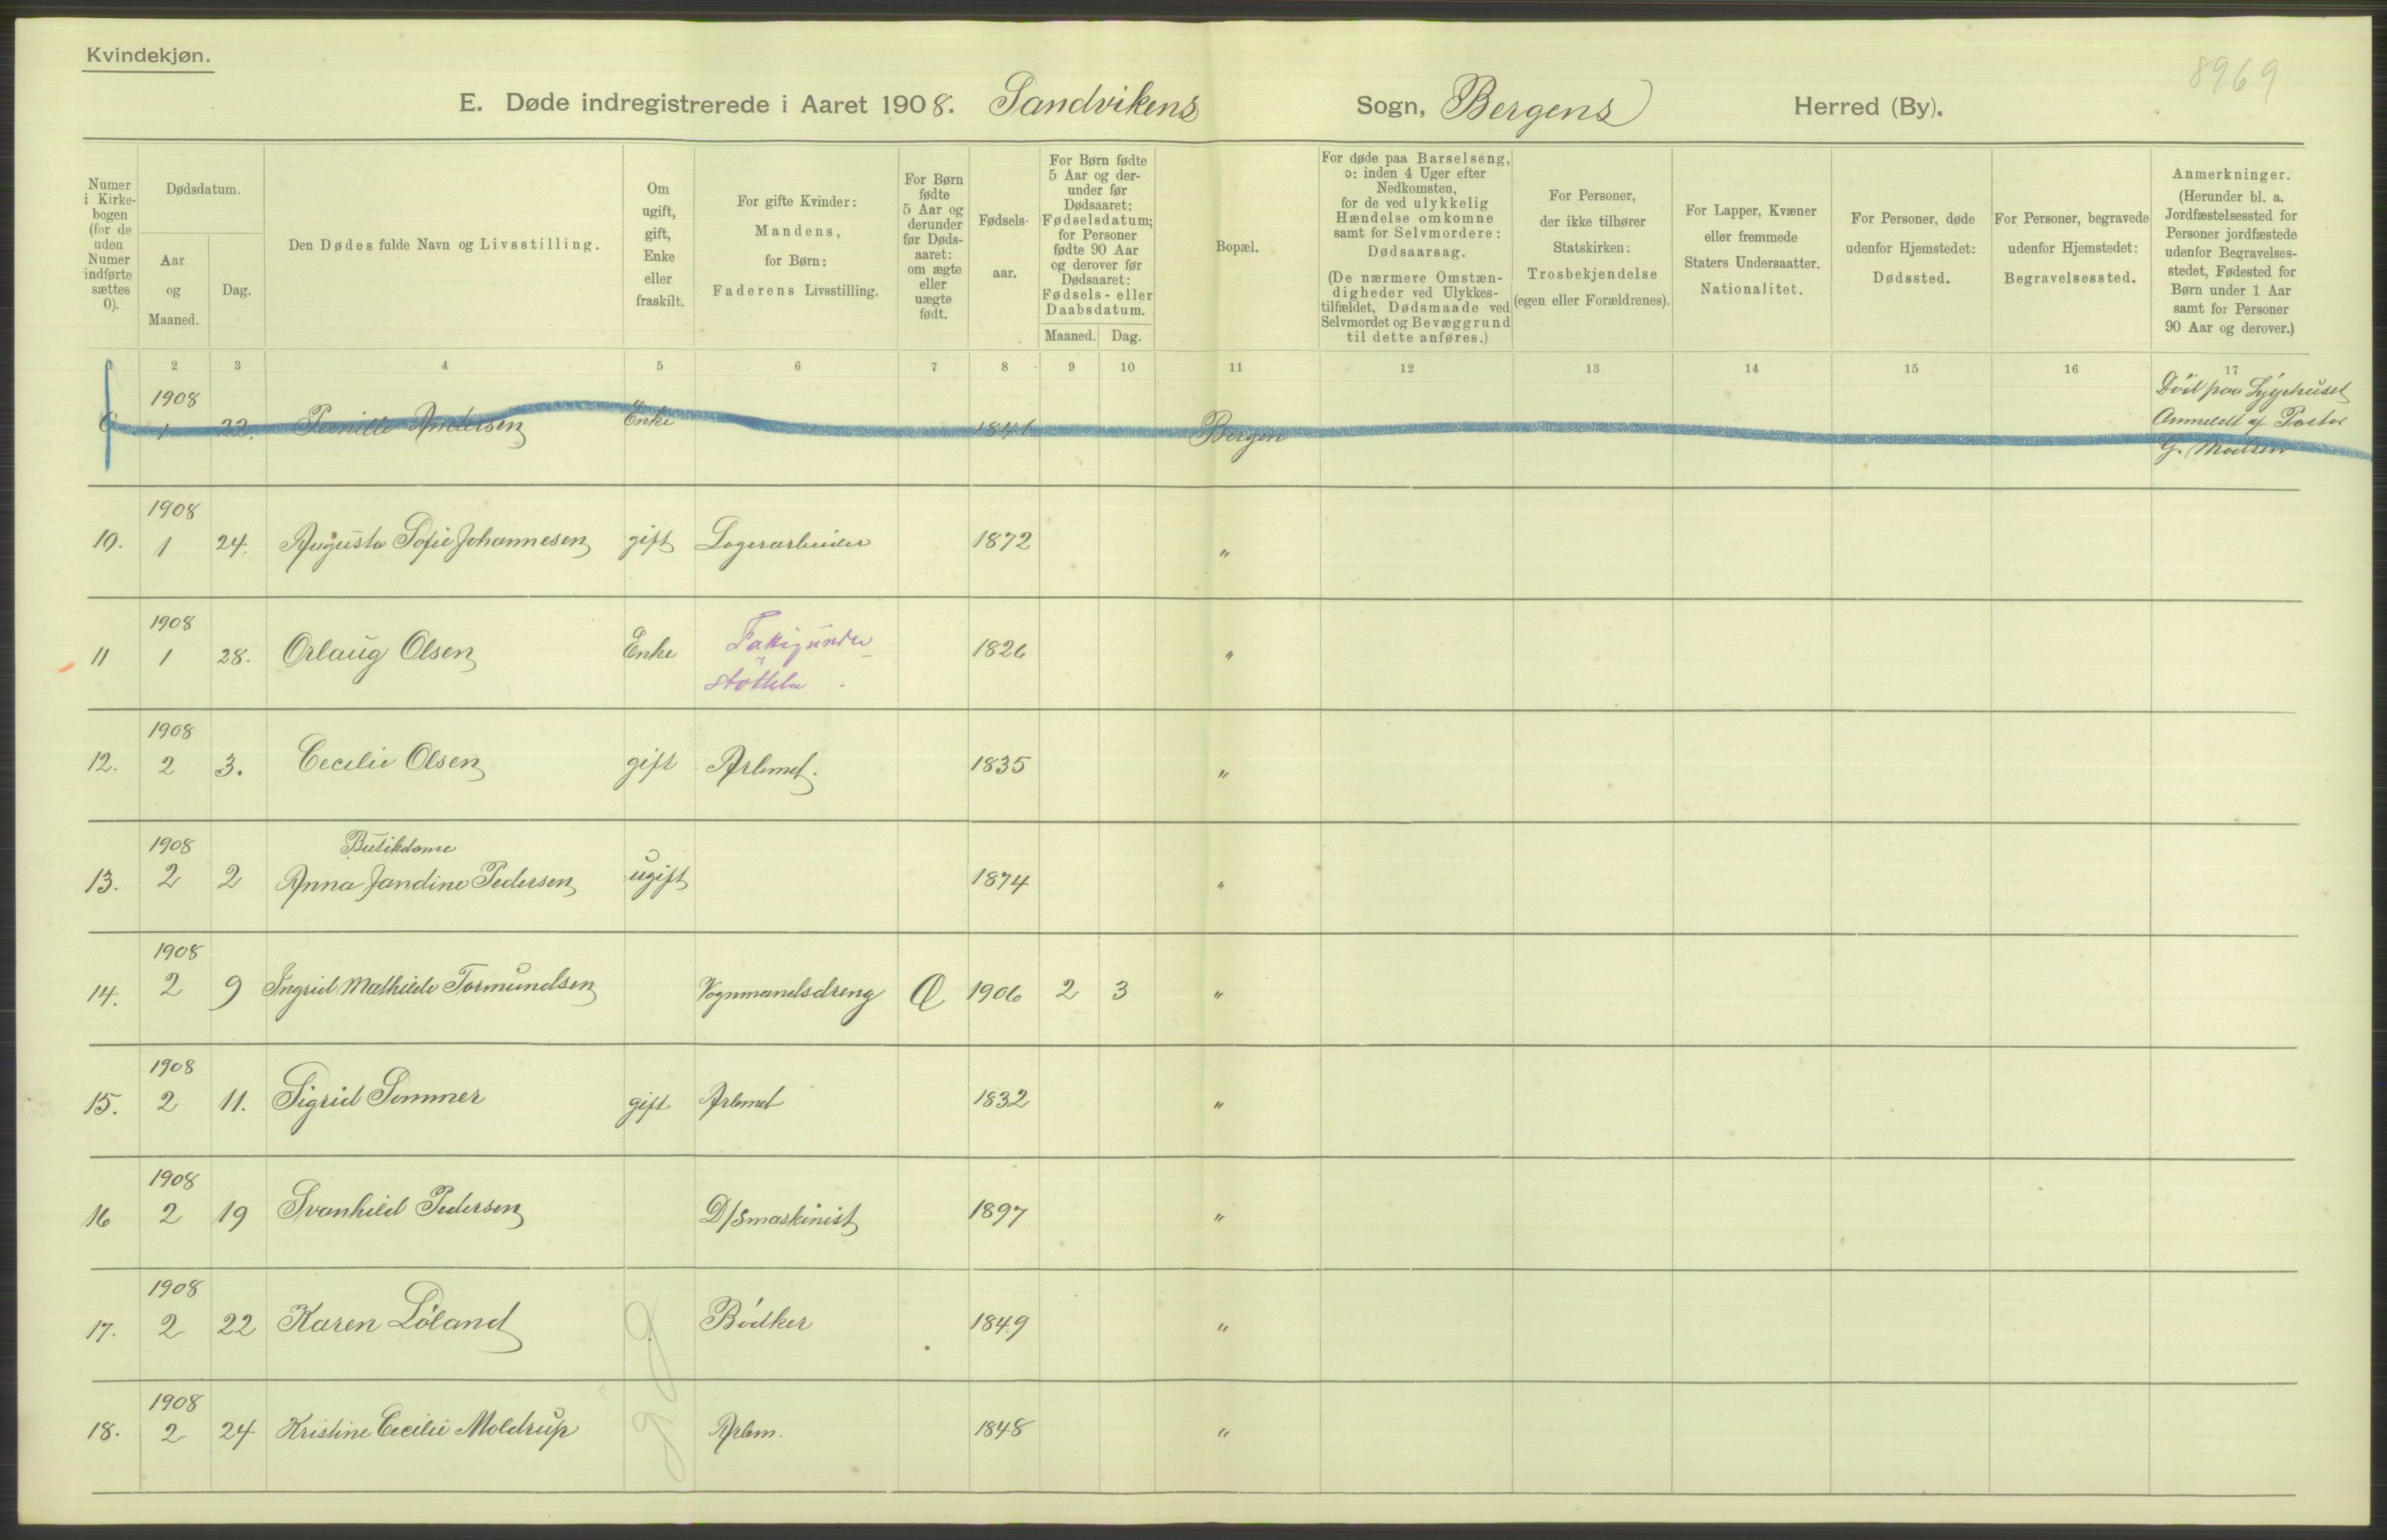 Kvindekjøn.
8969
E. Døde indregistrerede i Aaret 1908. Sandvikens Sogn, Bergens Herred (By).
Numer i Kirkebogen (for de uden Numer indførte sættes 0).
Dødsdatum.
Aar og Maaned.
Dag.
Den Dødes fulde Navn og Livsstilling.
Om ugift, gift, Enke eller fraskilt.
For gifte Kvinder: Mandens, for Børn: Faderens Livsstilling.
For Børn fødte 5 Aar og derunder før Dødsaaret: om ægte eller uægte født.
Fødselsaar.
For Børn fødte 5 Aar og derunder før Dødsaaret: Fødselsdatum; for Personer fødte 90 Aar og derover før Dødsaaret: Fødsels- eller Daabsdatum.
Maaned. Dag.
Bopæl.
For døde paa Barselseng, ɔ: inden 4 Uger efter Nedkomsten, for de ved ulykkelig Hændelse omkomne samt for Selvmordere: Dødsaarsag. (De nærmere Omstændigheder ved Ulykkestilfældet, Dødsmaade ved Selvmordet og Bevæggrund til dette anføres.)
For Personer, der ikke tilhører Statskirken: Trosbekjendelse (egen eller Forældrenes).
For Lapper, Kvæner eller fremmede Staters Undersaatter. Nationalitet.
For Personer, døde udenfor Hjemstedet: Dødssted.
For Personer, begravede udenfor Hjemstedet: Begravelsessted.
Anmerkninger. (Herunder bl. a. Jordfæstelsessted for Personer jordfæstede udenfor Begravelsesstedet, Fødested for Børn under 1 Aar samt for Personer 90 Aar og derover.)
1 2 3 4 5 6 7 8 9 10 11 12 13 14 15 16 17
1908
0 1 22. Pernille Andersen Enke 1841 Bergen
Död paa Sygehuset
Anmeldt af Pastor
G. Madsen
1908
10. 1 24. Augusta Sofie Johannesen gift Lagerarbeider 1872 "
1908
11 1 28. Orlaug Olsen Enke Fattigunder- 1826 "
støttelse
1908
12. 2 3. Cecilie Olsen gift Arbmd. 1835 "
1908 Butikdame
13. 2 2 Anna Jandine Pedersen ugift 1874 "
1908
14. 2 9 Ingrid Mathilde Tormundsen Vognmandsdreng 1906 2 3 "
1908
15. 2 11. Sigrid Sommer gift Arbmd 1832 "
1908
16 2 19 Svanhild Pedersen D/Smaskinist 1897 "
1908
17. 2 22 Karen Løland Bødker 1849 "
1908
18. 2 24 Kristine Cecilie Moldrup Arbm. 1848 "